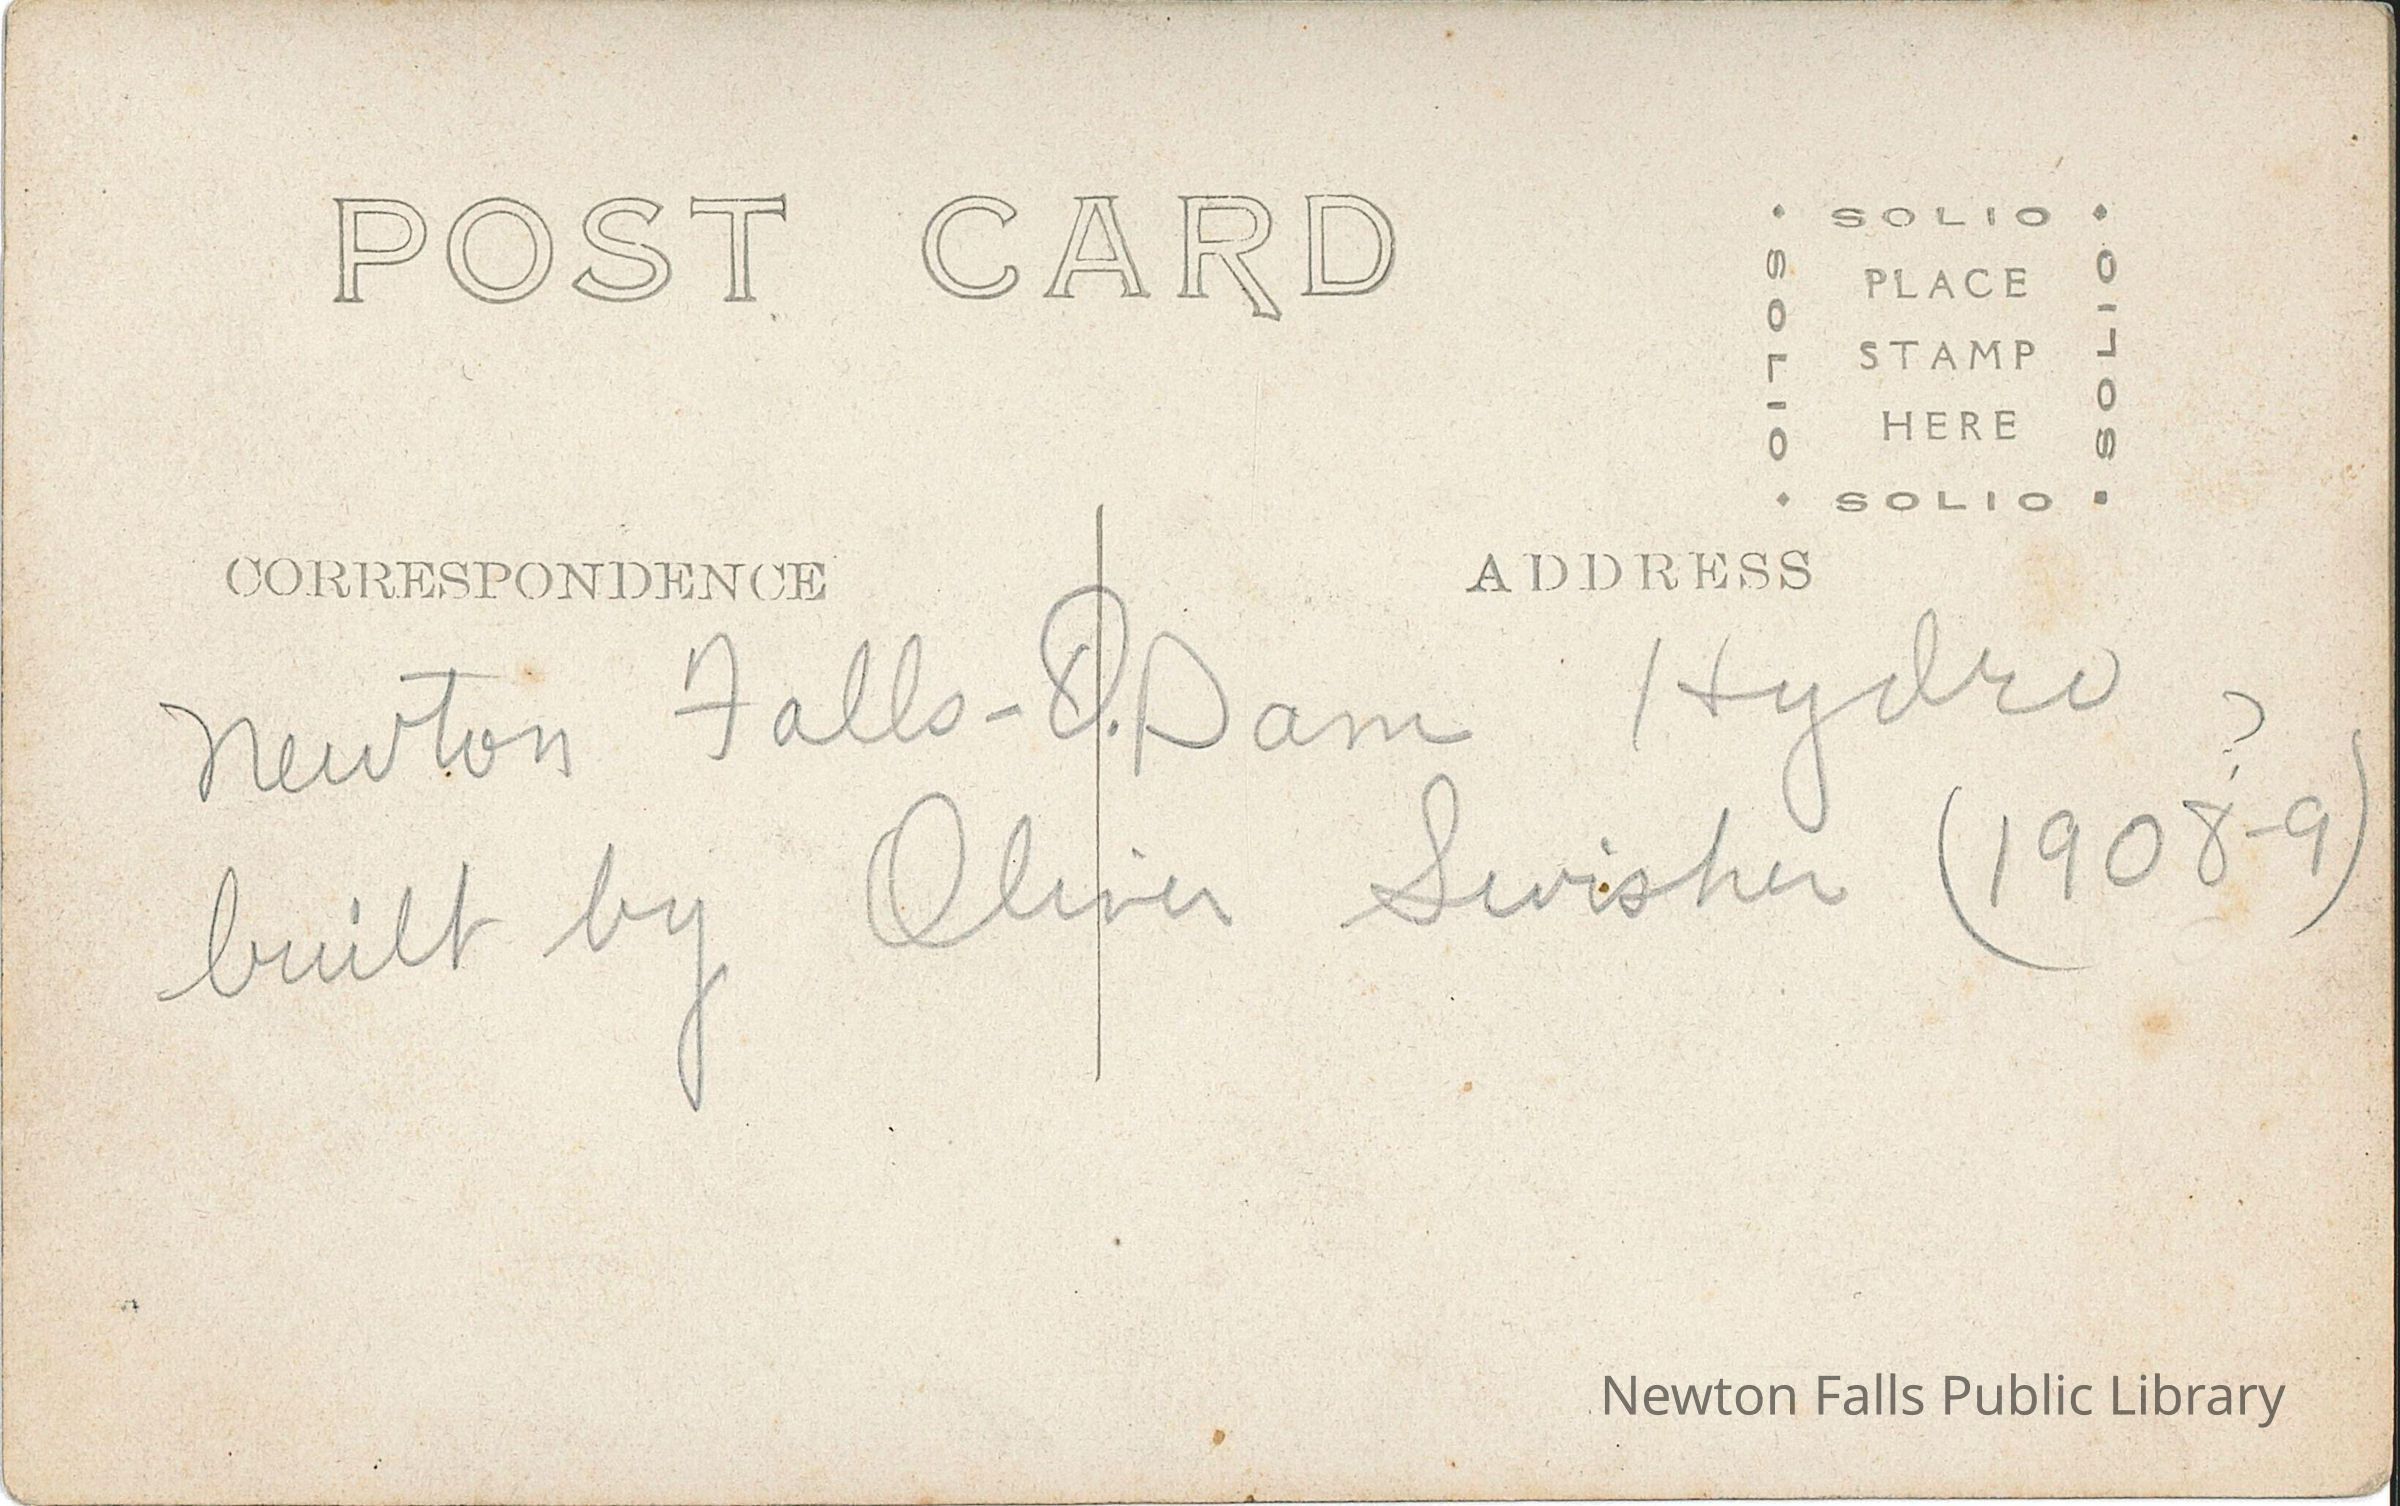 POST CARD
SOLIO
SOLIO
PLACE
STAMP
HERE
SOLIO
SOLIO
CORRESPONDENCE
ADDRESS
Newton Falls - O. Dam Hydro
built by Oliver Swisher (1908-9)?
Newton Falls Public Library